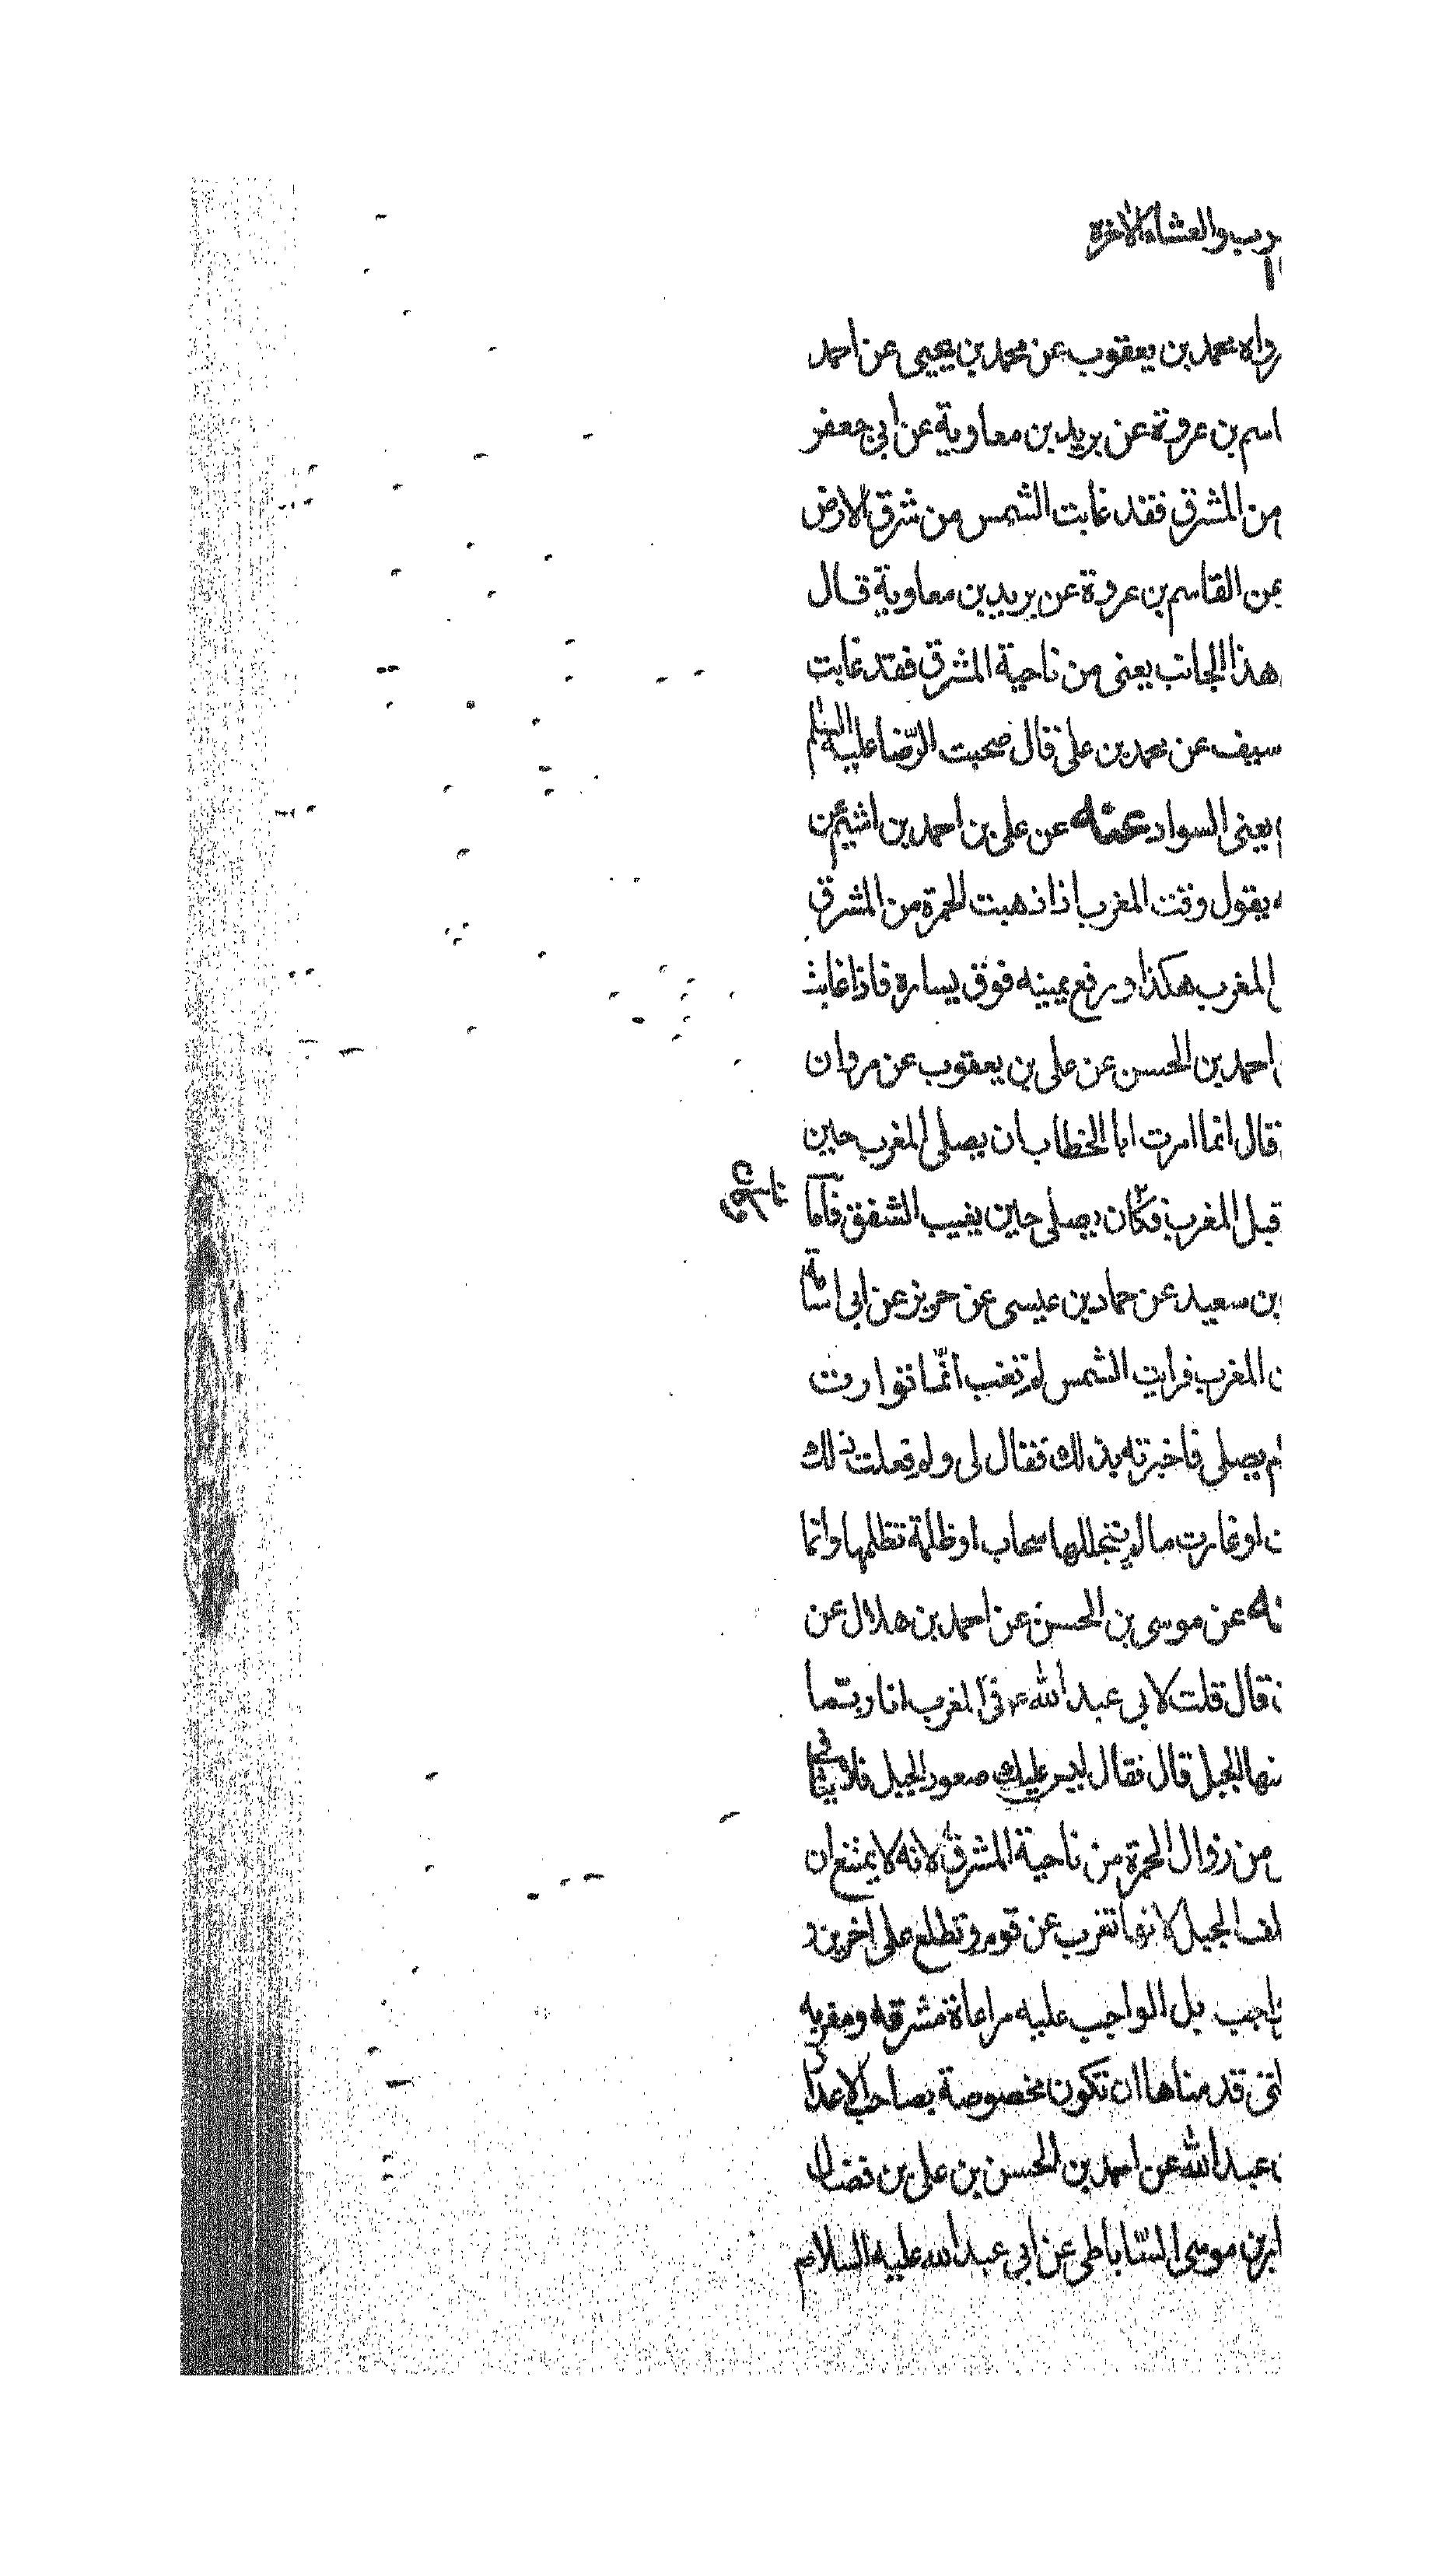 رب والعشاء الاخرة
رواه محمد بن يعقوب عن محمد بن يحيى عن احمد
اسم بن عروة عن بريد بن معاوية عن ابي جعفر
من المشرق فقد غابت الشمس من شرق الارض
عن القاسم بن عروة عن بريد بن معاوية قال
هذا الجانب يعنى من ناحية المشرق فقد غابت
سيف عن محمد بن على قال صحبت الرّضا عليه السلم
يعنى السواد عنه عن على بن احمد بن اشيم عن
يقول وقت المغرب اذا ذهبت الحمرة من المشرق
المغرب هكذا و رفع يمينه فوق يساره فاذا غابت
احمد بن الحسن عن على بن يعقوب عن مروان
قال انما امرت ابا الخطاب ان يصلى المغرب حين
قبل المغرب فكان يصلى حين يغيب الشفق فاما
بن سعيد عن حماد بن عيسى عن حريز عن ابى اسامة
المغرب فرايت الشمس لم تغب انّما توارت
يصلى فاخبرته بذلك فقال لى ولم فعلت ذلك
او غارت ما لم يتجللها سحاب او ظلمة تظلمها وانما
عن موسى بن الحسن عن احمد بن هلال عن
قال قلت لابى عبد الله ع فى المغرب انا ربّما
الجبل قال فقال ليس عليك صعود الجبل فلا ينافى
من زوال الحمرة من ناحية المشرق لانه لا يمتنع ان
لف الجبل لانها تغرب عن قوم وتطلع على اخرين و
اجب بل الواجب عليه مراعاة مشرقه ومغربه
لتى قدمناها ان تكون مخصوصة بصاحب الاعذا
عبد الله عن احمد بن الحسن بن على بن فضال
بن موسى السّاباطى عن ابى عبد الله عليه السلام